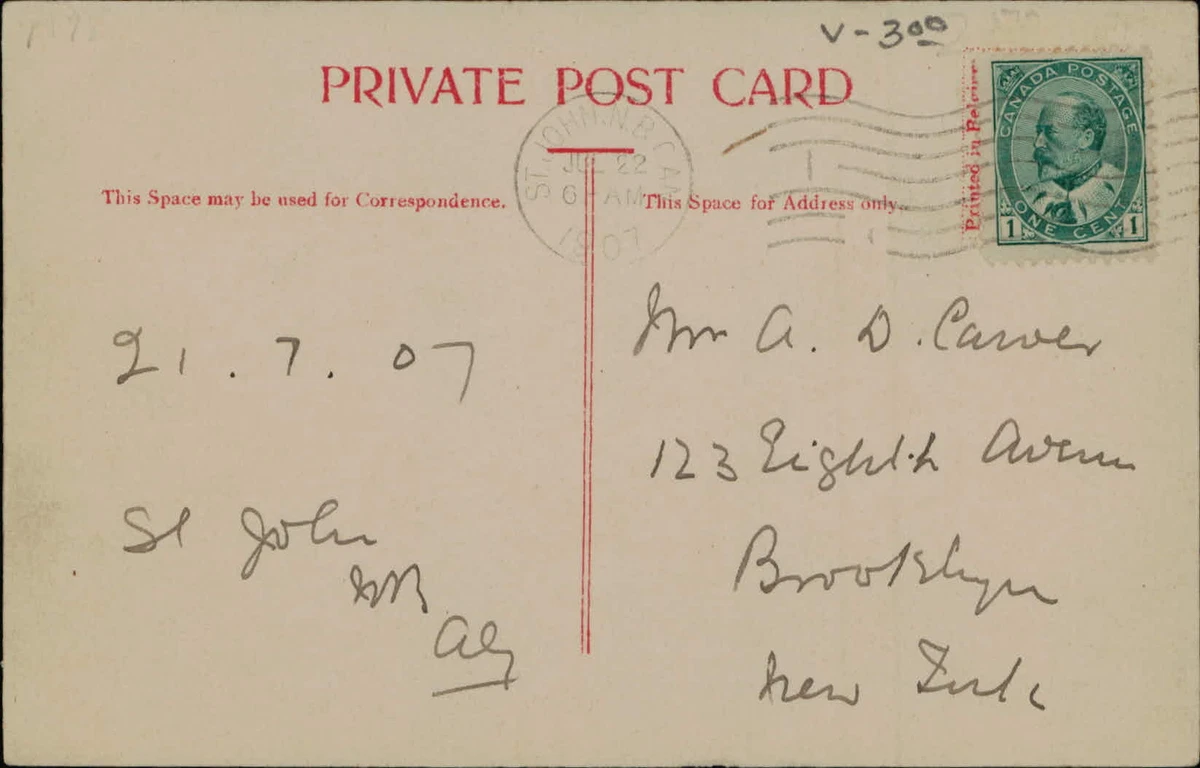 V - 3.00
PRIVATE POST CARD
CANADA POSTAGE
ONE CENT
1 1
Printed in
ST. JOHN. N.B. CAN
JUL 22
6 AM
1907
This Space may be used for Correspondence.
This Space for Address only.
21.7.07
St John
NB
Mr A. D. Carver
123 Eighth Avenue
Brooklyn
New York